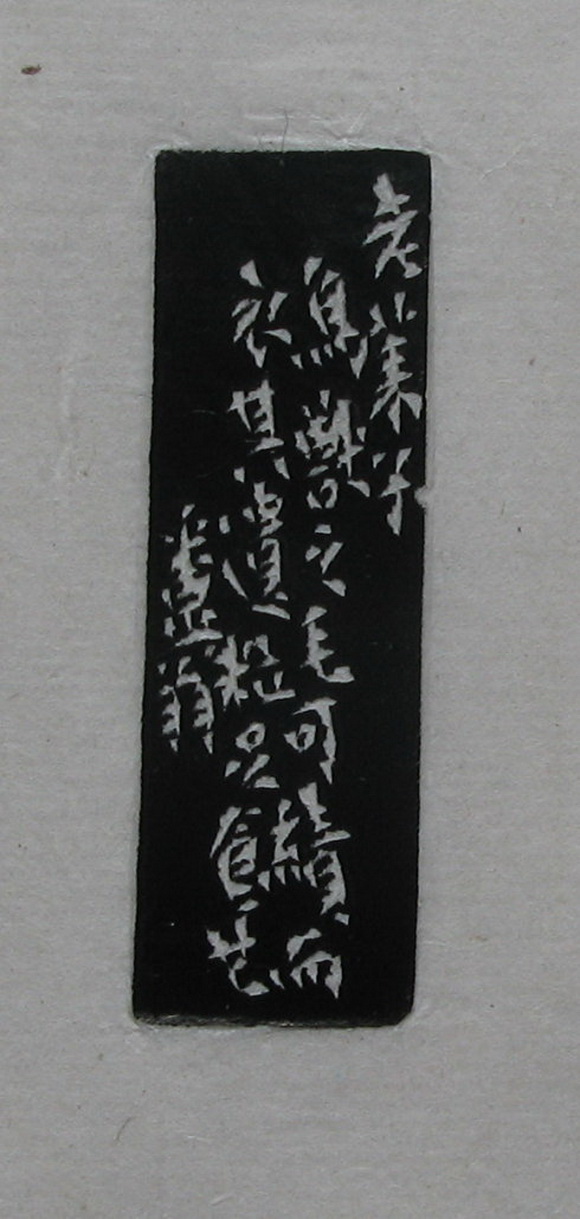 老萊子
鳥獸之毛可績而
衣其遺粒足食也
虛翁